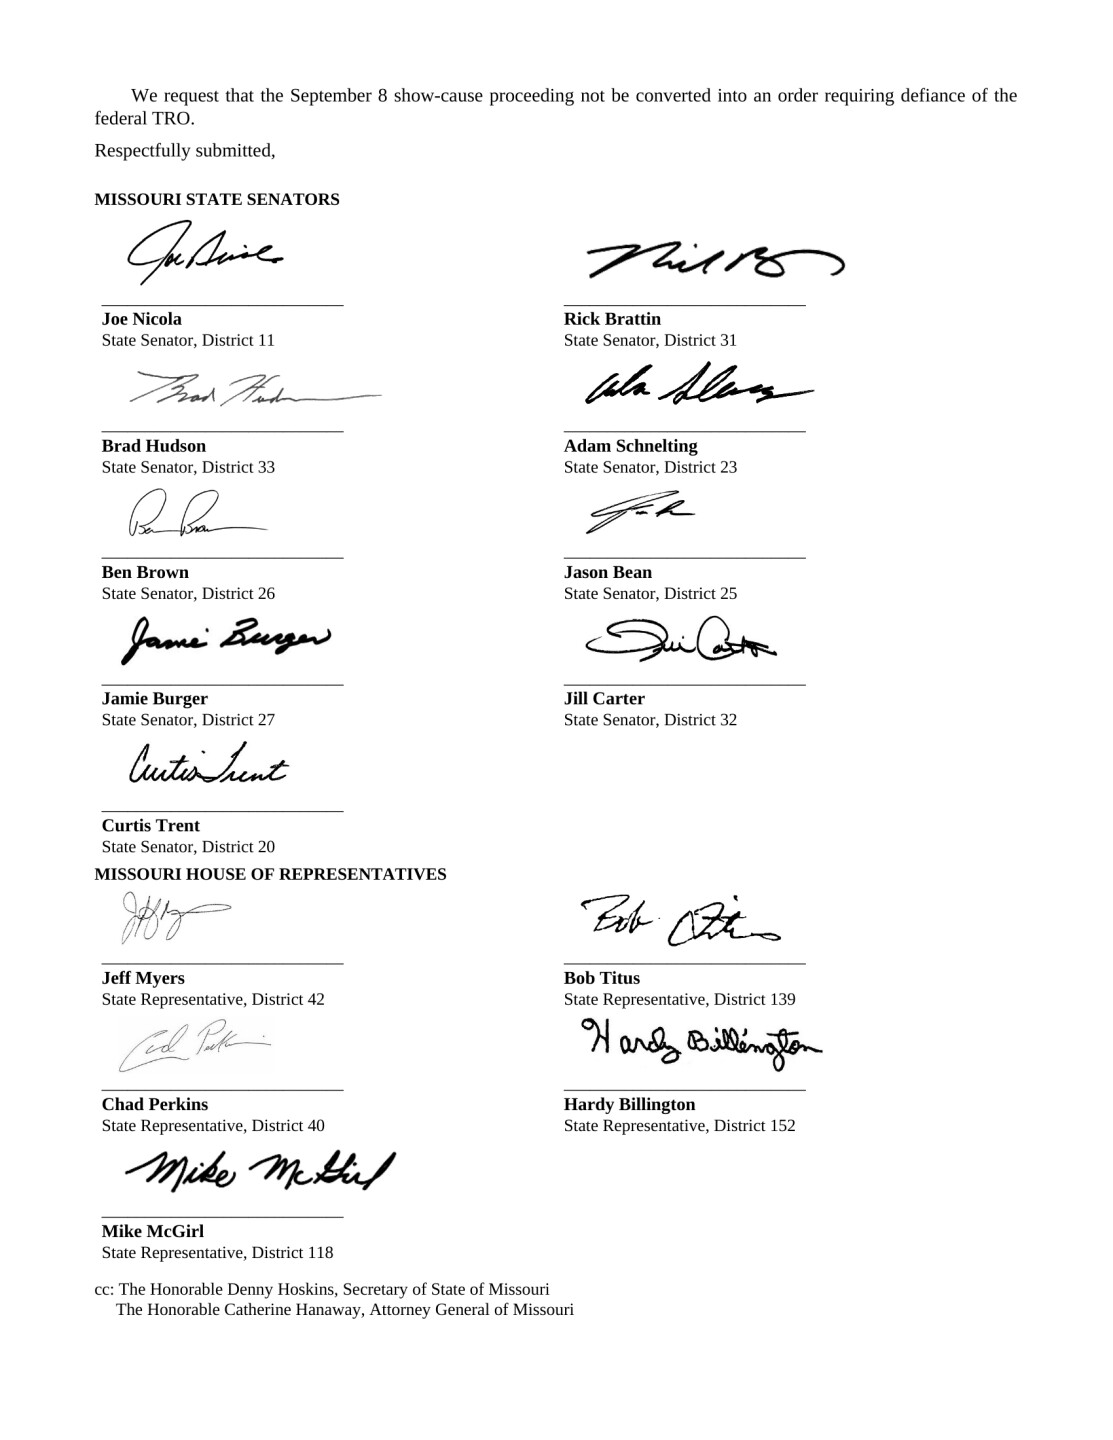 We request that the September 8 show-cause proceeding not be converted into an order requiring defiance of the
federal TRO.
Respectfully submitted,
MISSOURI STATE SENATORS
Joe Nicola
State Senator, District 11
Rick Brattin
State Senator, District 31
Brad Hudson
Brad Hudson
State Senator, District 33
Adam Schnelting
State Senator, District 23
Ben Brown
Ben Brown
State Senator, District 26
Jason Bean
State Senator, District 25
Jamie Burger
Jamie Burger
State Senator, District 27
Jill Carter
State Senator, District 32
Curtis Trent
Curtis Trent
State Senator, District 20
MISSOURI HOUSE OF REPRESENTATIVES
Jeff Myers
State Representative, District 42
Bob Titus
Bob Titus
State Representative, District 139
Chad Perkins
State Representative, District 40
Hardy Billington
Hardy Billington
State Representative, District 152
Mike McGirl
Mike McGirl
State Representative, District 118
cc: The Honorable Denny Hoskins, Secretary of State of Missouri
The Honorable Catherine Hanaway, Attorney General of Missouri